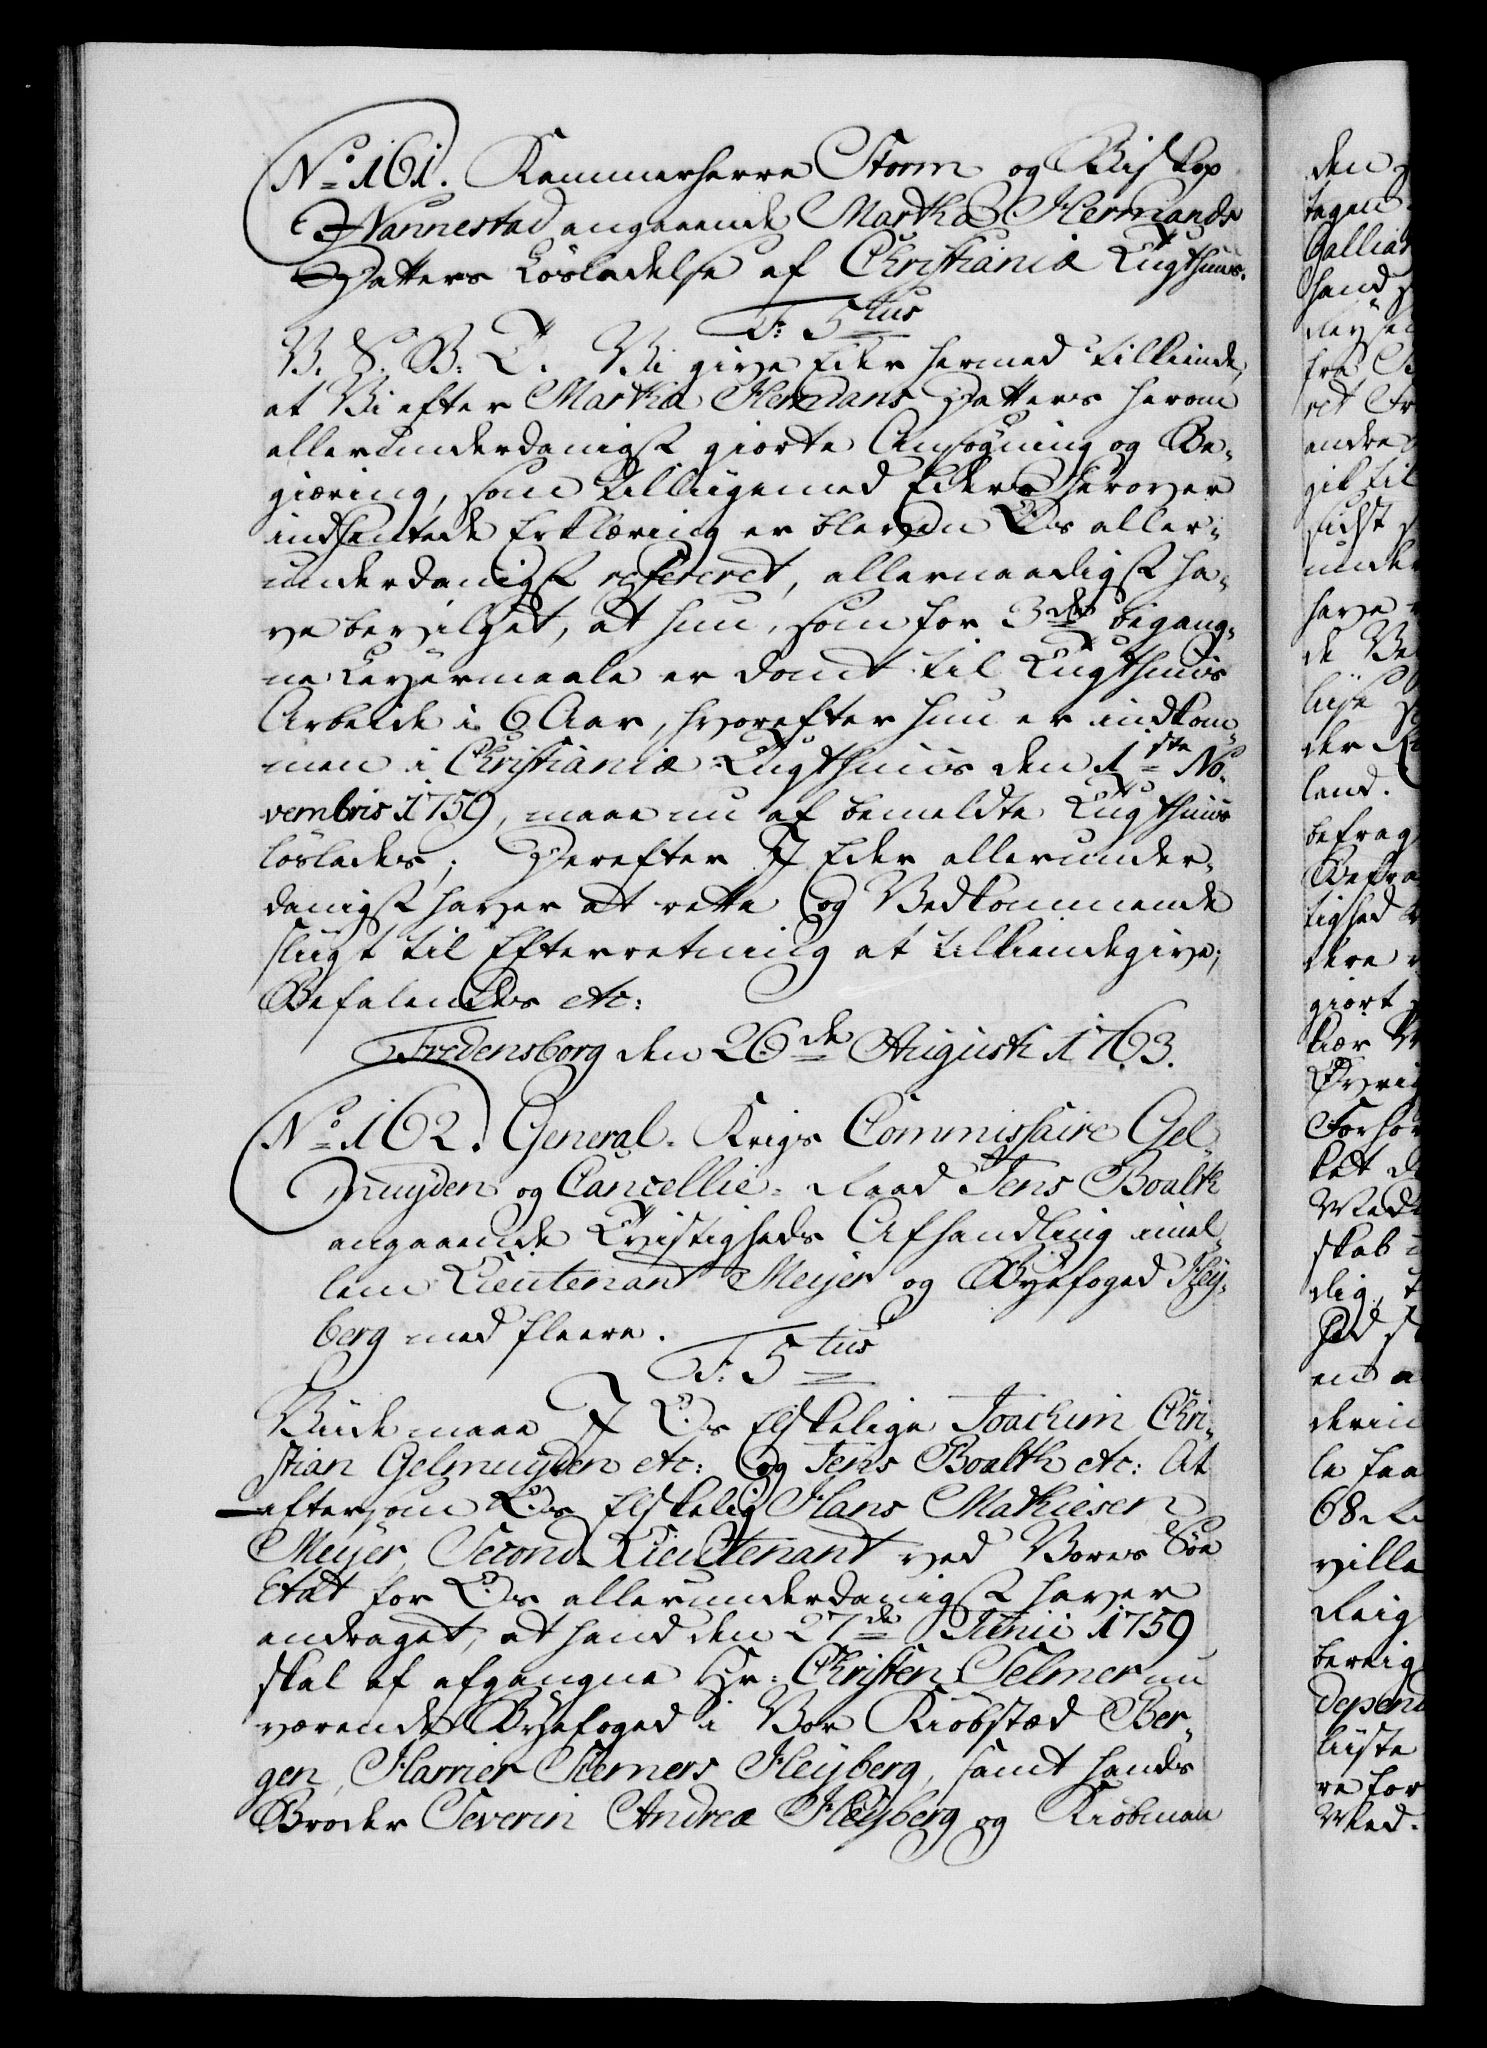 No 161. Kammerherre Storm og Biskop
Nannestad angaaende Martha Hermands
Datters Løsladelse af Christianiæ Tugthuus.
F: 5tus
V. S. B: T. Vi give Eder hermed tilkiende,
at Vi efter Martha Hermans Datters herom
allerunderdanigst giorte Ansøgning og Be-
giæring, som tilligemed Eders herover
indhentede Erklæring er bleven Os aller-
underdanigst refereret, allernaadigst ha-
ve bevilget, at hun, som for 3de begang-
ne Leyermaale er dømt til Tugthuus
Arbeide i 6 Aar, hvorefter hun er indkom-
men i Christianiæ Tugthuus den 1ste No-
vembris 1759, maae nu af bemeldte Tugthuus
løslades; Derefter I Eder allerunder-
danigst haver at rette og Vedkommende
sligt til Efterretning at tilkiendegive;
Befalendes etc:
Fredensborg den 26de Augusti 1763.
No 162. General-Krigs Commissaire Gel-
muyden og Cancellie-Raad Jens Boalth
angaaende Tvistigheds Afhandling imel-
lem Lieutenant Meyer og Byefoged Hey-
berg med fleere.
F: 5tus
Viide maae I Os Elskelige Joachim Chri-
stian Gelmuyden etc: og Jens Boalth etc: At
eftersom Os Elskelig Hans Mathiesen
Meyer, Second Lieutenant ved Vores Søe
Etat for Os allerunderdanigst haver
andraget, at hand den 27de Junii 1759
skal af afgangne Hr: Christen Selmer nu
værende Byefoged i Vor Kiøbstæd Ber-
gen, Harrier Siemers Heyberg, samt hands
Broder Severin Andreæ Heyberg og Kiøbman